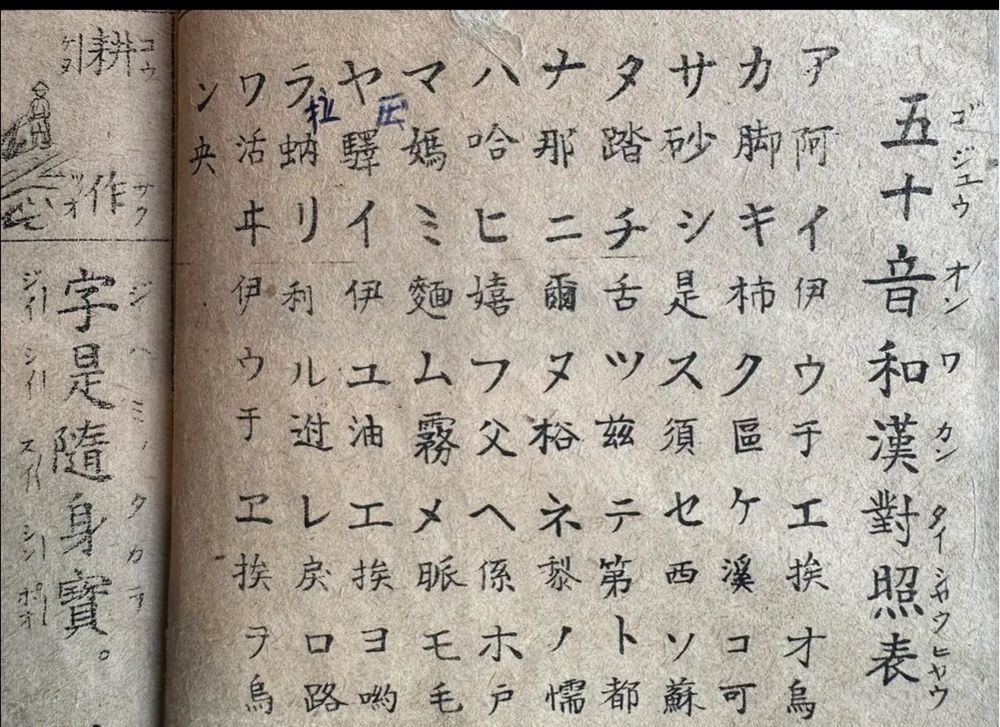 五十音和漢對照表
ゴジユウオンワカンタイシヤウヒヤウ
ア阿イ伊ウ于エ挨オ烏
カ脚キ柿ク區ケ溪コ可
サ砂シ是ス須セ西ソ蘇
タ踏チ舌ツ茲テ第ト都
ナ那ニ爾ヌ ネ ノ懦
ハ哈ヒ嬉フ父ヘ係ホ戸
マ媽ミ麵ム霧メ脈モ毛
ヤ驛イ伊ユ油エ挨ヨ喲
ラ蚋リ利ル レ戻ロ路
拉
ワ活ヰ伊ウ于ヱ挨ヲ烏
ン央
コウ サク
耕作
ジハミノタカラ
字是隨身寶。
ジイ シイ スイ シン ポオ